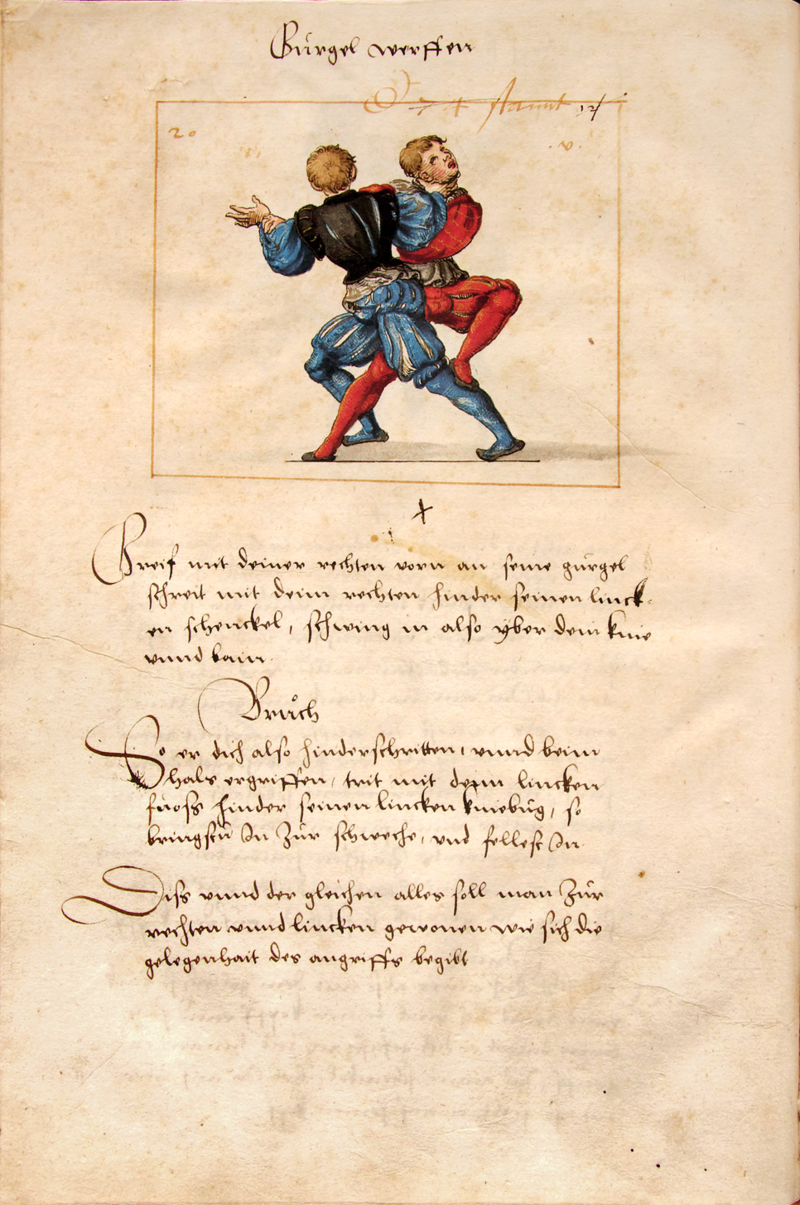 Gürgel werffen
12
20
Greif mit deiner rechten vorn an seine gürgel
schreit mit deim rechten hinder seinen linck-
en schenckel, schwing in also yber dein knie
vnnd bain
Brüch
So er dich also hinderschritten, vnnd beim
hals ergriffen, trit mit deym lincken
fuoss hinder seinen lincken kniebüg, so
bringstü In Zür schweche, vnd fellest In
Diss vnnd der gleichen alles soll man Zür
rechten vnnd lincken gewonen wie sich die
gelegenhait des angriffs begibt